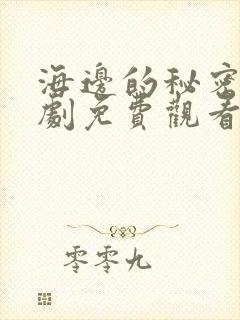 海邊的秘密
劇免費觀看
零零九